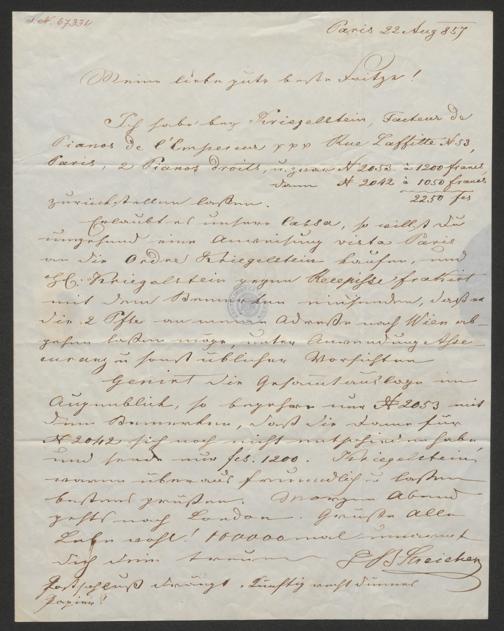 I.N. 67331
Paris 22 Aug 857
Meine liebe gute beste Fritze!
Ich habe bey Kriegelstein, Facteur de
Pianos de l'Empereur xxx Rue Laffitte N 53,
Paris, 2 Pianos droits, u. zwar N 2053 à 1200 francs
dann N 2042 à 1050 francs
2250 fcs
zurückstellen lassen.
Erlaubt es unsere Cassa, so willst du
umgehend eine Anweisung vista Paris
an die Ordre Kriegelstein kaufen, und
H. Kriegelstein gegen Recepisse frankirt
mit dem Bemerken einsenden, daß er
die 2 Pfte an meine Adresse nach Wien ab-
gehen lassen möge, unter Anwendung Asse-
curanz u sonst üblicher Vorsichten
Genirt die Gesammtauslage im
Augenblick, so begehre nur N 2053 mit
dem Bemerken, daß die Dame für
N 2042 sich noch nicht entschieden habe
und sende nur fcs. 1200. Kriegelstein,
waren überaus freundlich u lassen
bestens grüßen. Morgen Abend
gehts nach London. Grüße Alle
Lebe wohl! 100000 mal umarmt
dich dein treuer
JB Streicher
Postschluß drängt. Künftig recht dünnes
Papier!